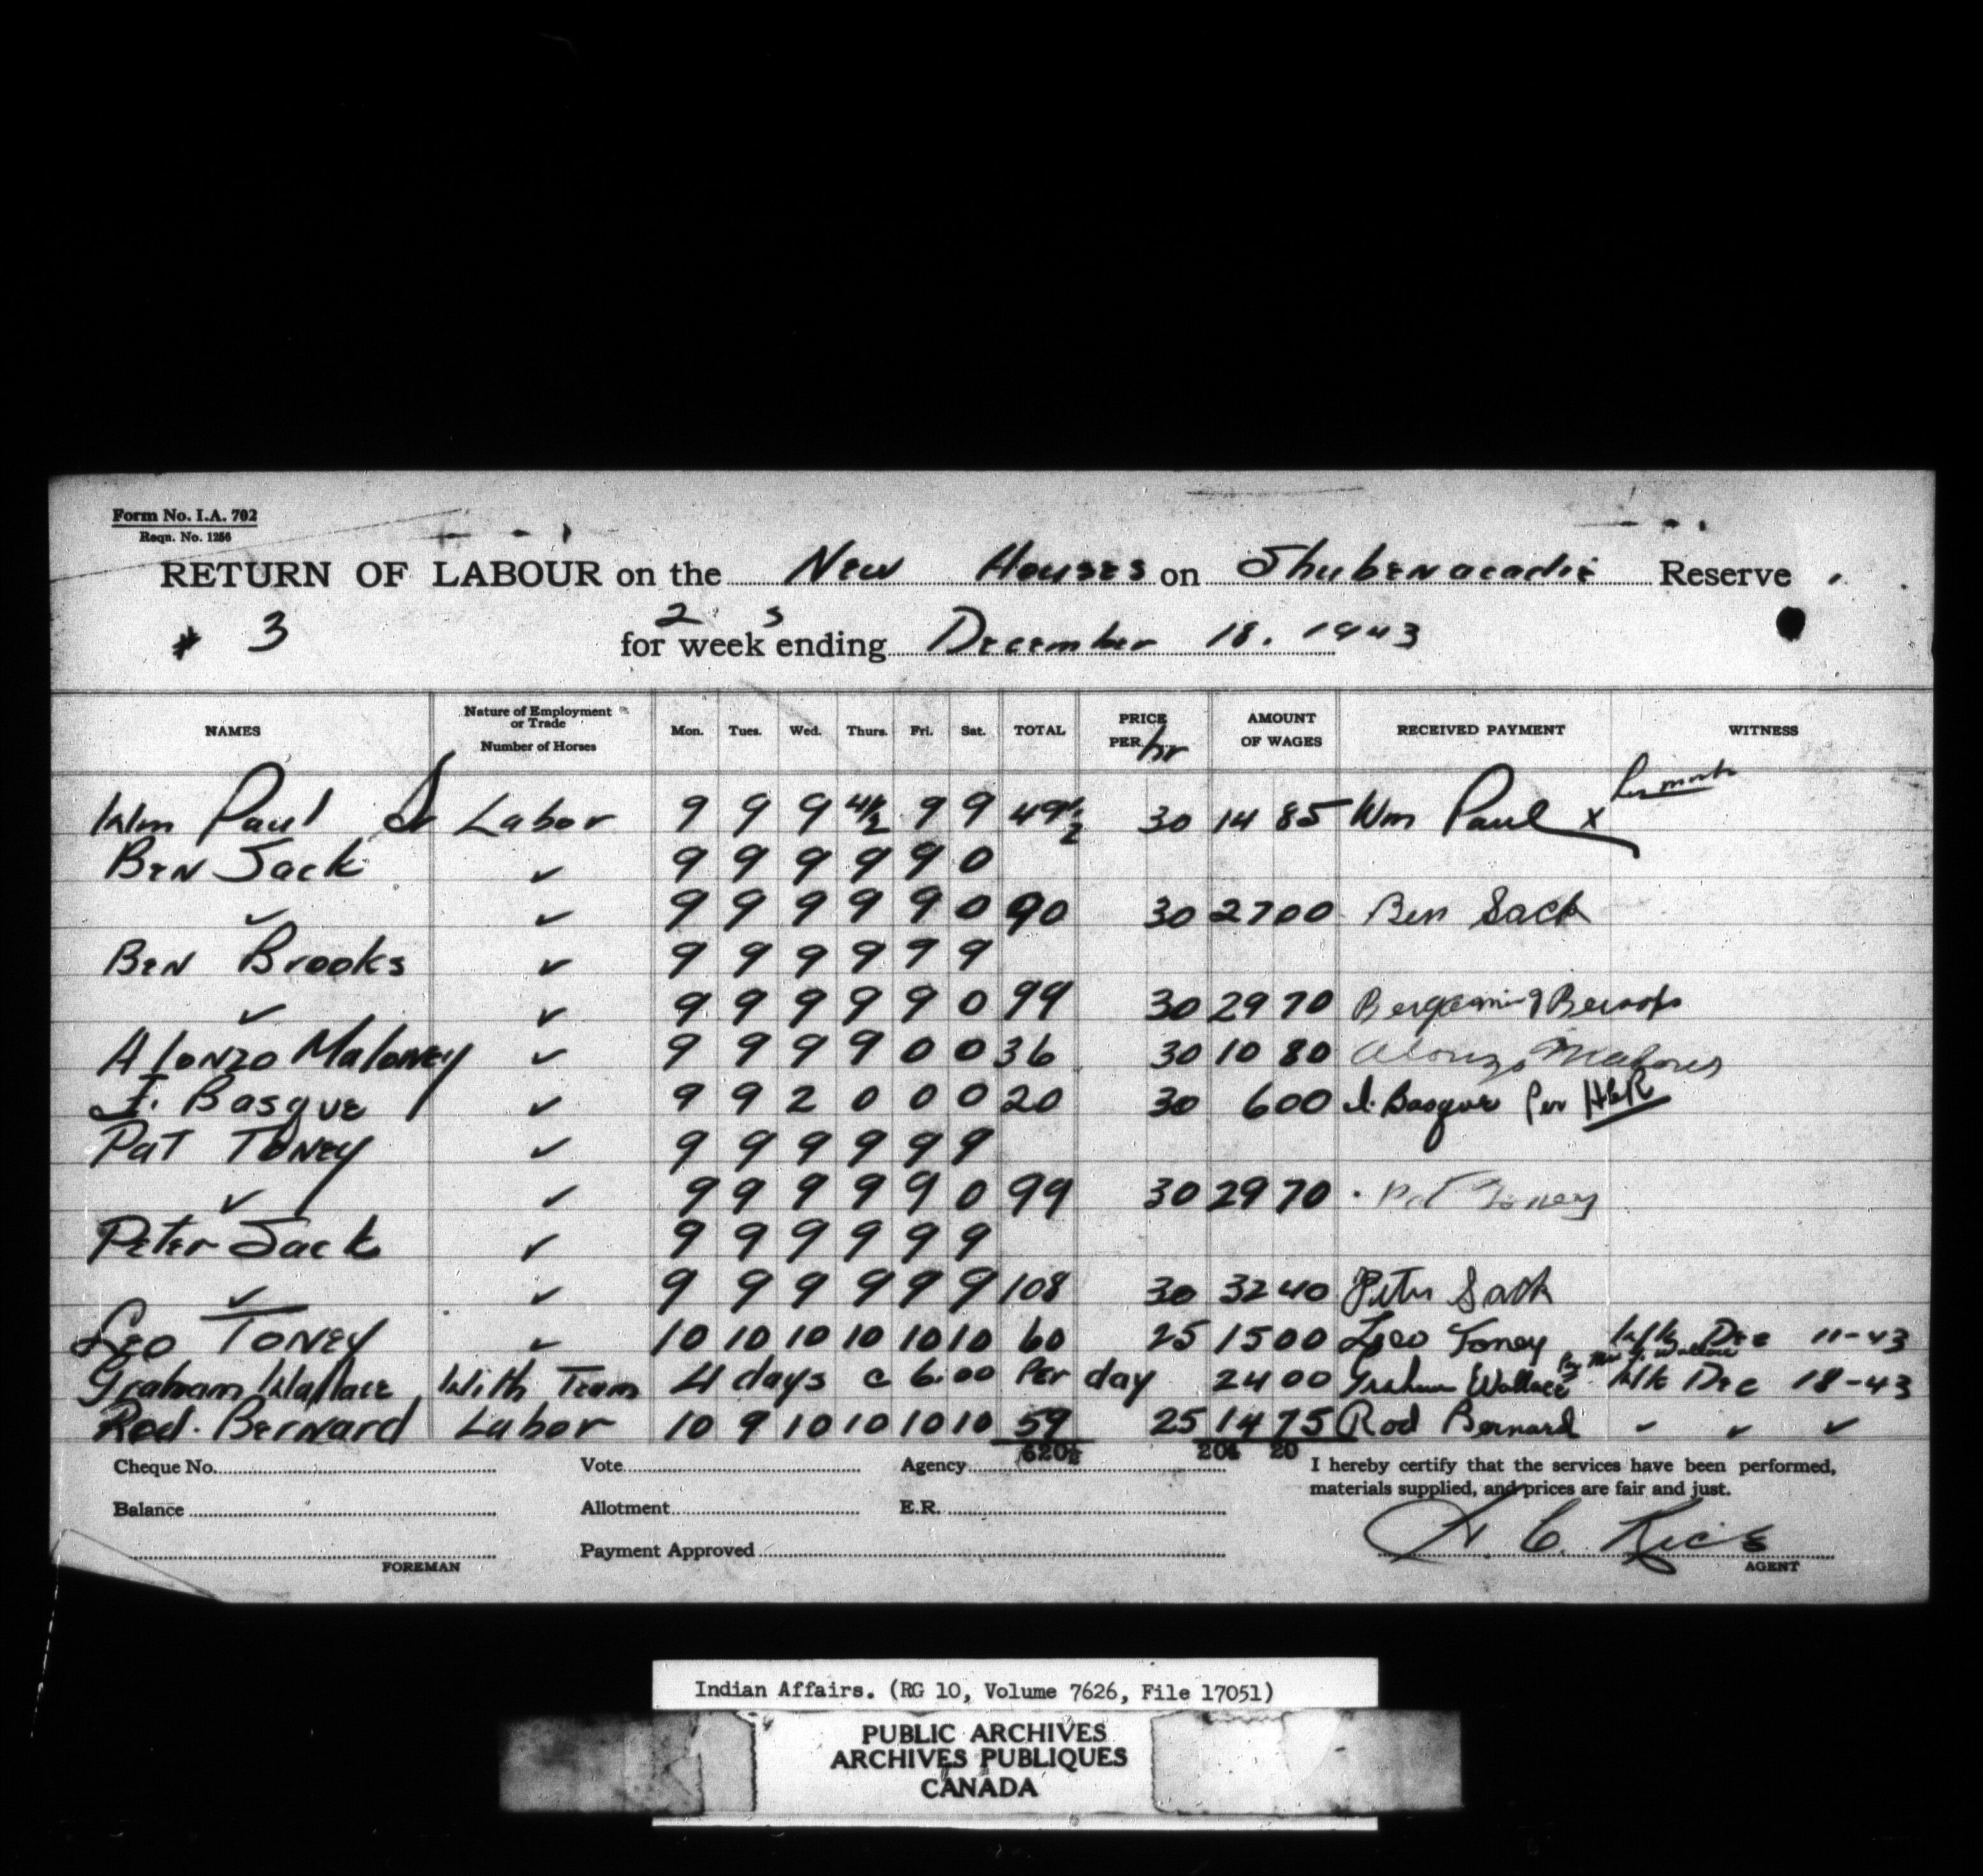 Form No. I.A. 702
Reqn. No. 1256
RETURN OF LABOUR on the New Houses on Shubenacadie Reserve
# 3 for 2 week s ending December 18. 1943
NAMES Nature of Employment or Trade Number of Horses Mon. Tues. Wed. Thurs. Fri. Sat. TOTAL PRICE PER hr AMOUNT OF WAGES RECEIVED PAYMENT WITNESS
Wm Paul Sr Labor 9 9 9 4½ 9 9 49½ 30 14 85 Wm Paul x his mark
Ben Sack ✓ 9 9 9 9 9 0
✓ ✓ 9 9 9 9 9 0 90 30 27 00 Ben Sack
Ben Brooks ✓ 9 9 9 9 9 9
✓ ✓ 9 9 9 9 9 0 99 30 29 70
Alonzo Maloney ✓ 9 9 9 9 0 0 36 30 10 80 Alonzo Maloney
I. Basque ✓ 9 9 2 0 0 0 20 30 6 00 I. Basque Per HCR
Pat Toney ✓ 9 9 9 9 9 9
✓ ✓ 9 9 9 9 9 0 99 30 29 70 Pat Toney
Peter Sack ✓ 9 9 9 9 9 9
✓ ✓ 9 9 9 9 9 9 108 30 32 40 Peter Sack
Leo Toney ✓ 10 10 10 10 10 10 60 25 15 00 Leo Toney Wk Dec 11-43
Graham Wallace With Team 4 days @ 6.00 Per day 24 00 Graham Wallace By Mrs G. Wallace Wk Dec 18-43
Rod. Bernard Labor 10 9 10 10 10 10 59 25 14 75 Rod Bernard ✓ ✓ ✓
620½ 204 20
Cheque No. Vote Agency I hereby certify that the services have been performed,
materials supplied, and prices are fair and just.
Balance Allotment E.R.
H. C. Rice
Payment Approved
FOREMAN AGENT
Indian Affairs. (RG 10, Volume 7626, File 17051)
PUBLIC ARCHIVES
ARCHIVES PUBLIQUES
CANADA